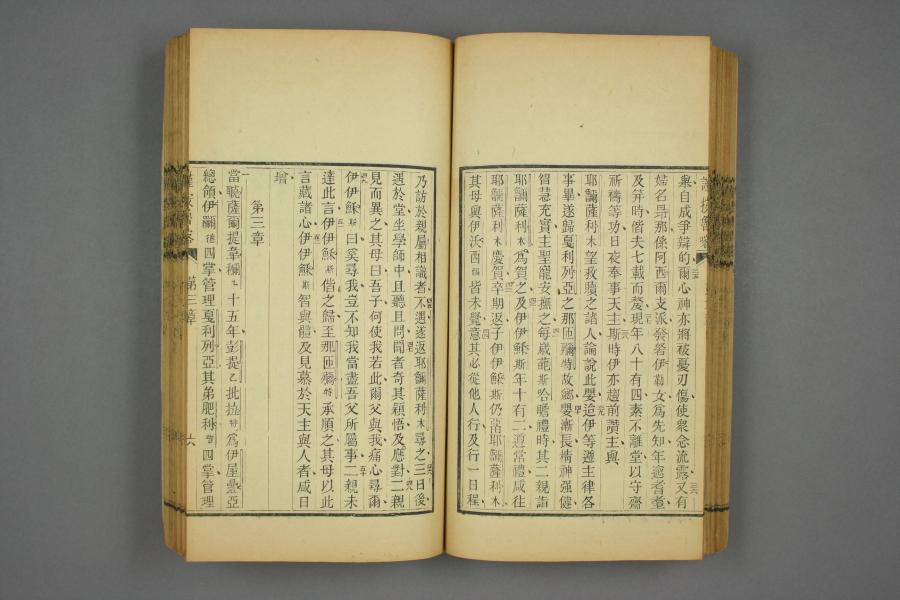 衆自成爭辯的爾心神亦將被憂刃傷使衆念流露又有
婦名揚那係阿西爾支派發努伊勒女爲先知年逾耆耋
及笄時偕夫七載而嫠現年八十有四素不離堂以守齋
祈禱等功日夜奉事天主斯時伊亦趨前讚主與
耶爾薩利木望救贖之諸人論說此嬰追伊等遵主律各
事畢遂歸戛利列亞之那匝爾特故鄉嬰漸長精神强健
智慧充實主聖寵安撫之每歲葩斯哈瞻禮時其二親詣
耶爾薩利木爲賀之及伊伊穌斯年十有二遵當禮咸往
耶爾薩利木慶賀卒期返子伊伊穌斯仍諸耶爾薩利木
其母與伊沃西福皆未覺意其必從他人行及行一日程
乃訪於親屬相識者不遇遂返耶爾薩利木尋之三日後
遇於堂坐學師中且聽且問聞者奇其穎悟及應對二親
見而異之其母曰吾子何使我若此爾父與我痛心尋爾
伊伊穌斯曰奚尋我豈不知我當盡吾父所屬事二親未
達此言伊伊穌斯偕之歸至那匝爾特承順之其母以此
言藏諸心伊伊穌斯智與體及見慕於天主與人者咸日
增
第三章
當聽薩爾提韋爾乙十五年彭提乙批拉特爲伊屋疊亞
總領伊爾德四掌管理戛利列亞其弟肥利普四掌管理
第三章
六